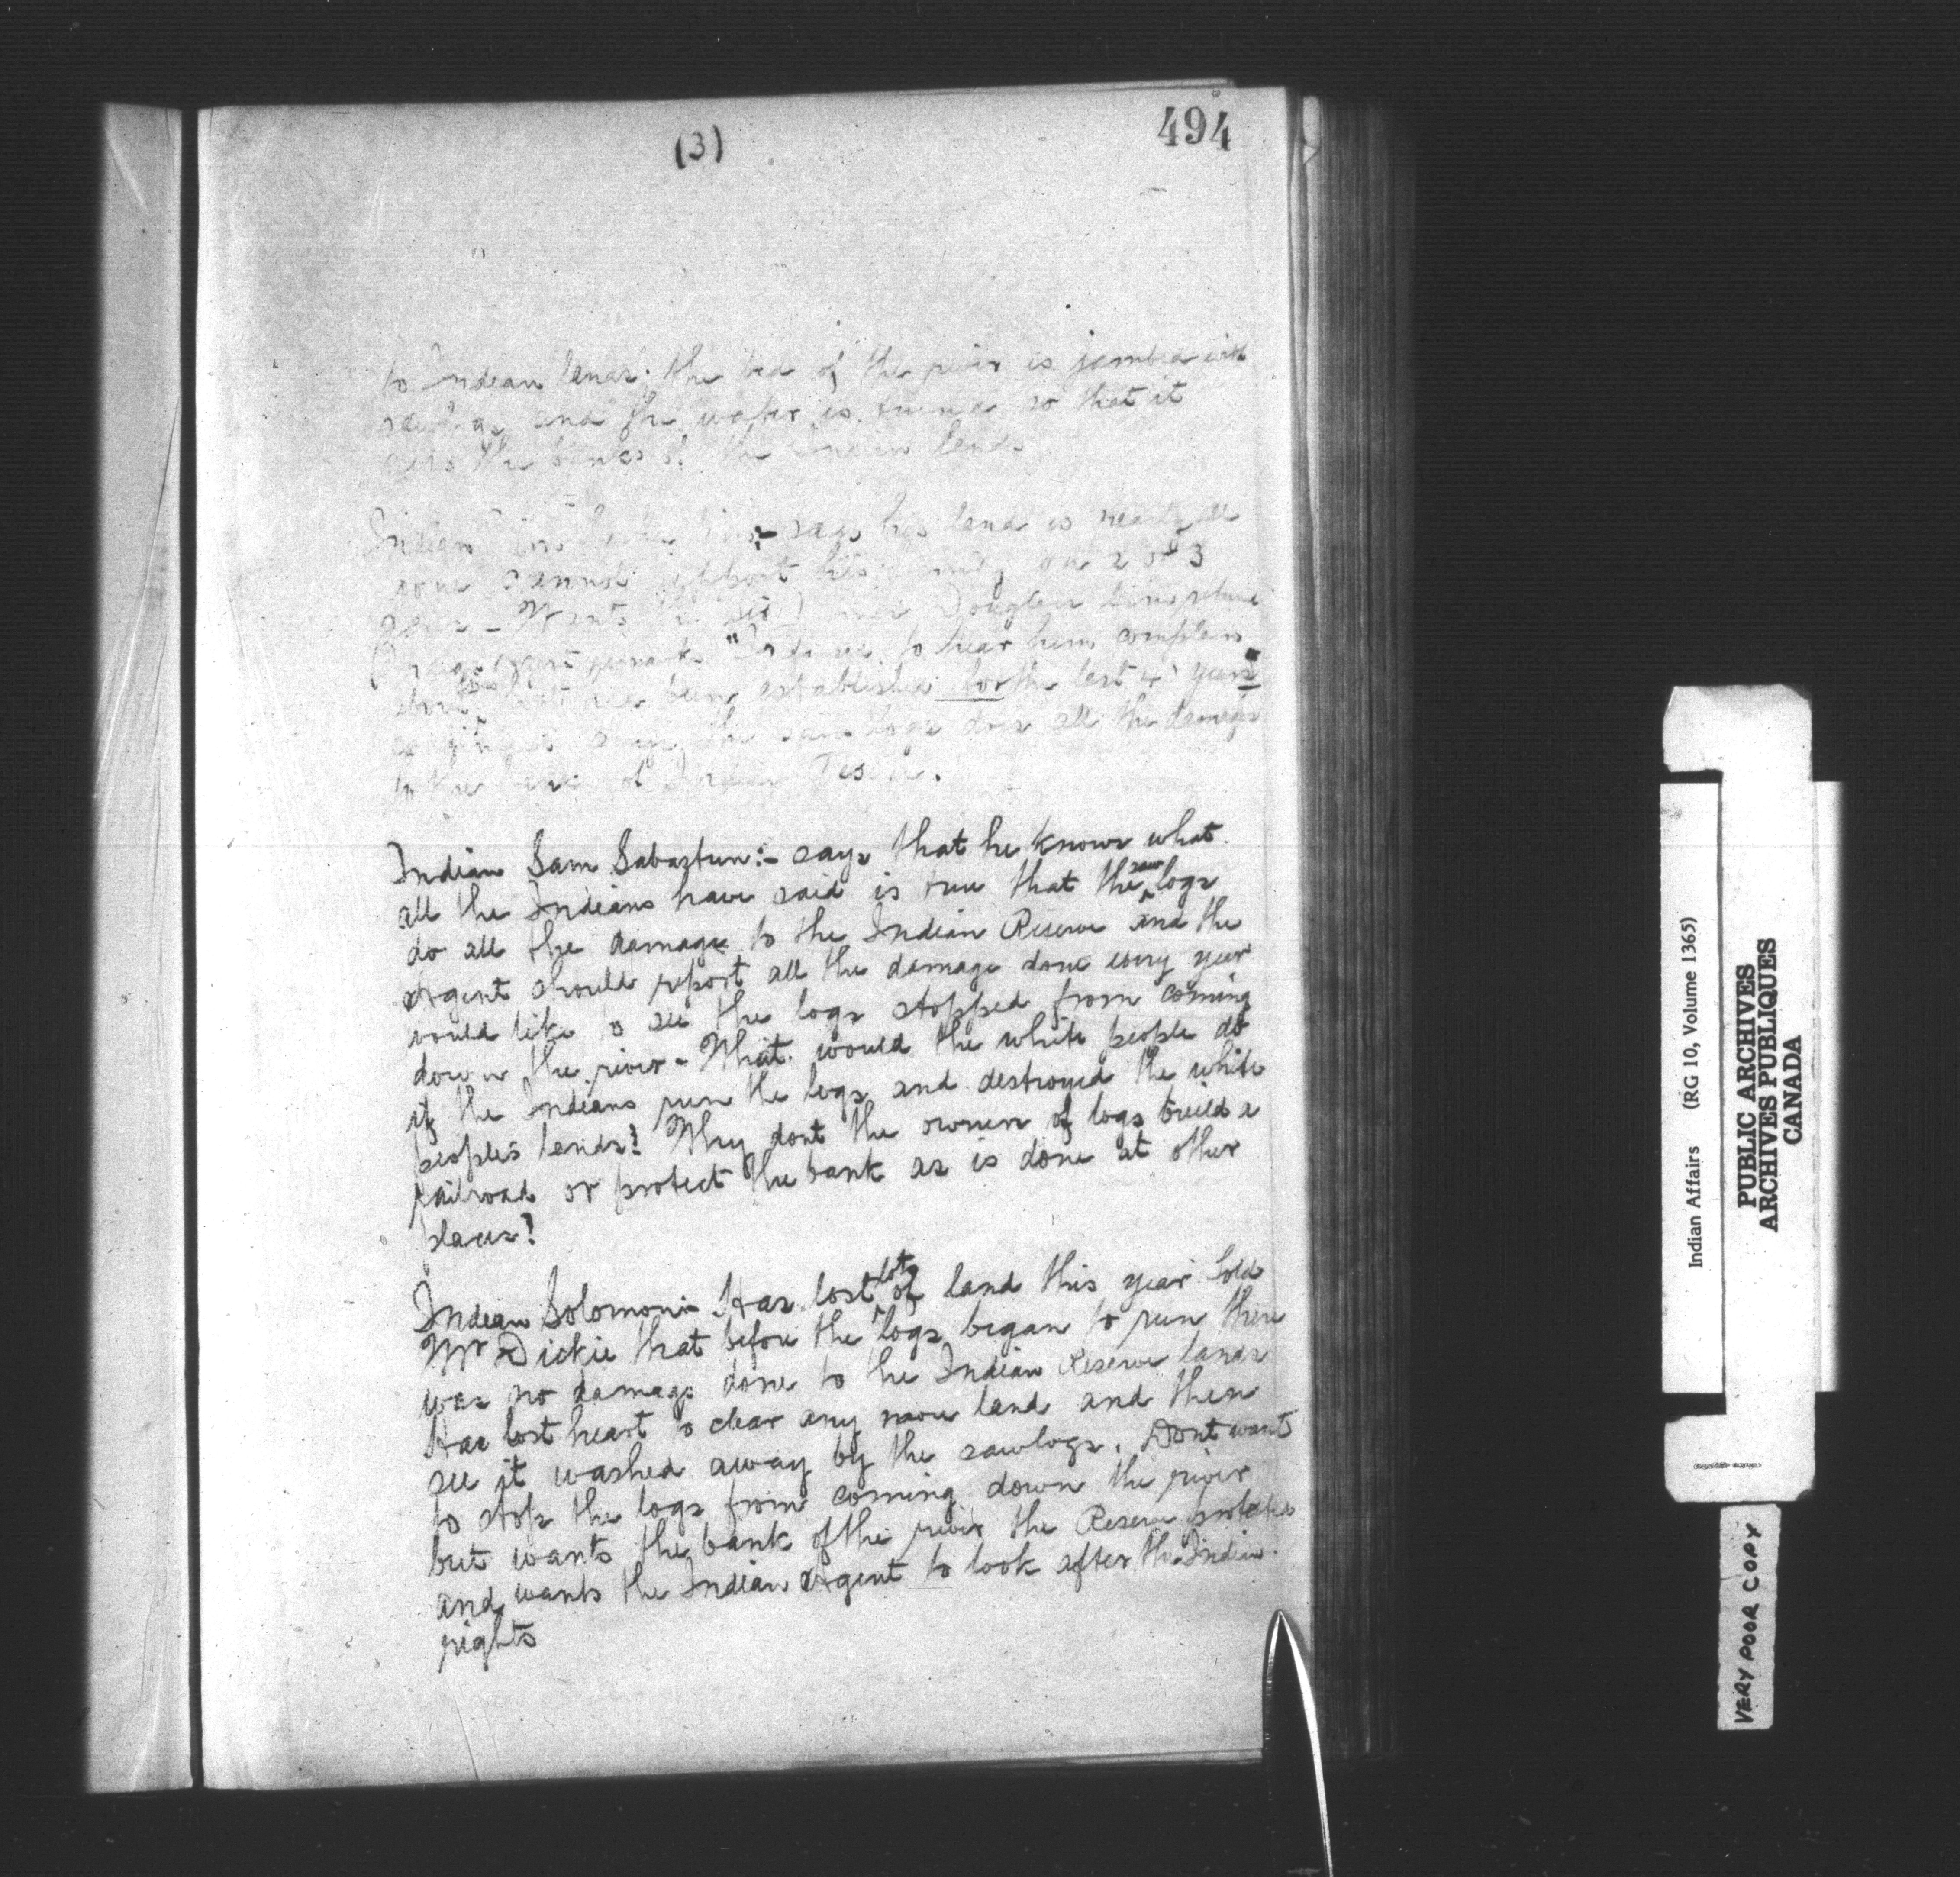 494
(3)
to Indian lands. the bed of the river is jambed with
and the water is so that it
the banks of the Indian land.
Indian says his land is nearly all
gone cannot support his family on 2 or 3
Wants Douglas
to hear him complain
about been established for the last 4 years
says the saw logs does all the damage
to the of Indian
Indian Sam Sabastun:- says that he knows what
all the Indians have said is true that the saw logs
do all the damage to the Indian Reserve and the
Agent should report all the damage done every year
would like to see the logs stopped from coming
down the river - What would the white people do
if the Indians run the logs and destroyed the white
peoples lands? Why dont the owners of logs build a
railroad or protect the bank as is done at other
places?
Indian Solomon:- Has lost lots of land this year Told
Mr Dickie that before the logs began to run there
was no damage done to the Indian Reserve lands
Has lost heart to clear any more land and then
see it washed away by the sawlogs. Dont want
to stop the logs from coming down the river
but wants the bank of the river the Reserve protected
and wants the Indian Agent to look after the Indian
rights
Indian Affairs (RG 10, Volume 1365)
PUBLIC ARCHIVES
ARCHIVES PUBLIQUES
CANADA
VERY POOR COPY